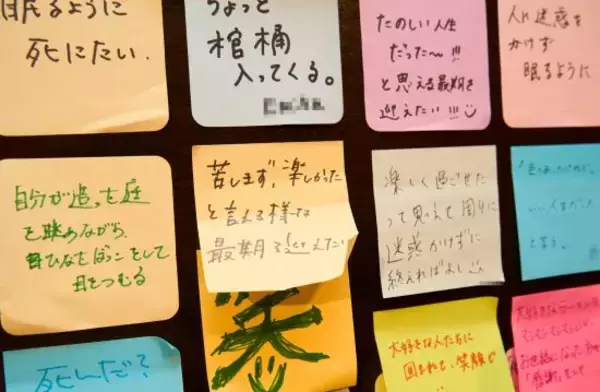 眠るように
死にたい.
ちょっと
棺桶
入ってくる。
たのしい人生
だった〜!!!
と思える最期を
迎えたい!!!
人に迷惑を
かけず
眠るように
自分が造った庭
を眺めながら、
日ひなたぼっこをして
目をつむる
苦します、楽しかった
と言える様な
最期を迎えたい
楽しく過ごせた
って思えて周りに
迷惑かけずに
終えればよし
死んだ?
笑
大好きな人たちに
囲まれて、笑顔で